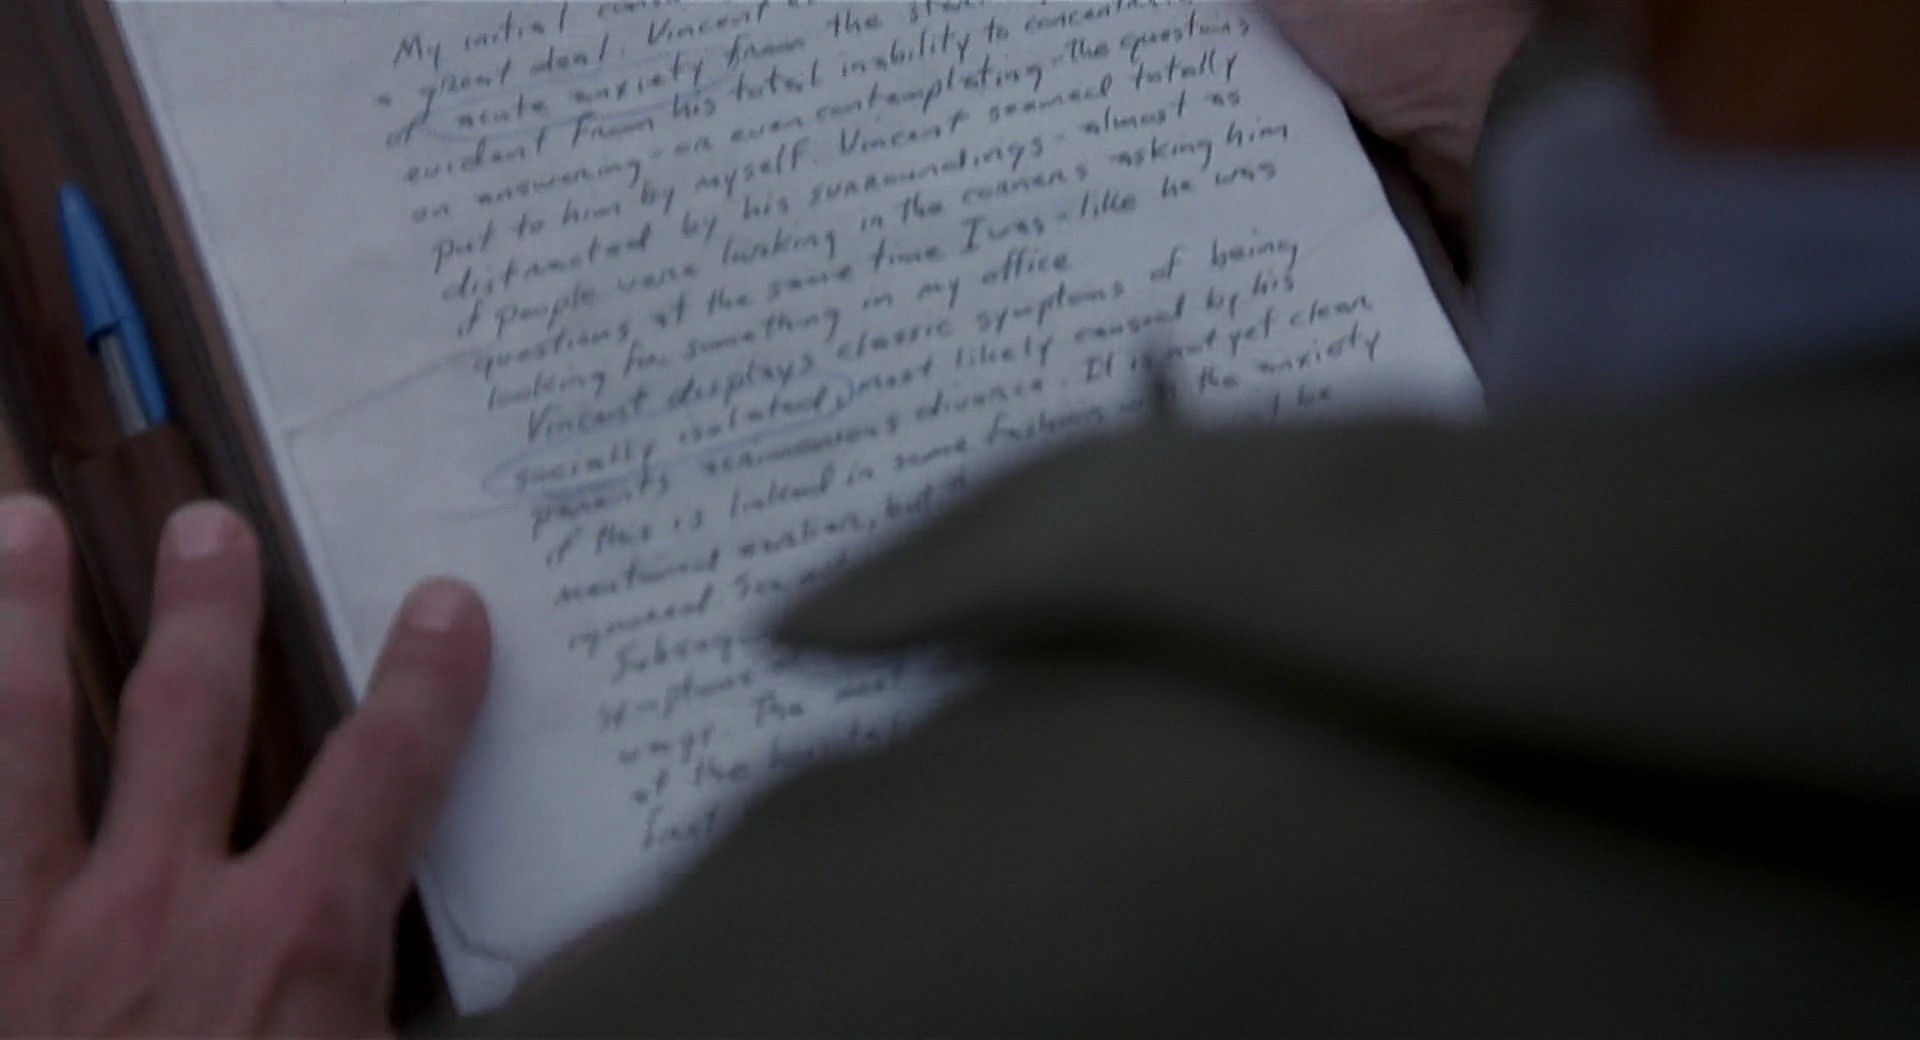 My initial
a great deal. Vincent
of acute anxiety from the
evident from his total inability to
on answering - or even contemplating - the questions
put to him by myself. Vincent seemed totally
distracted by his surroundings - almost as
if people were looking in the corners asking him
questions at the same time I was - like he was
looking for something in my office
Vincent displays classic symptoms of being
socially isolated, most likely caused by his
parents acrimonious divorce. It is not yet clear
if this is linked in some fashion the anxiety
mentioned earlier, but be
ignored.
symptoms
The most
at the